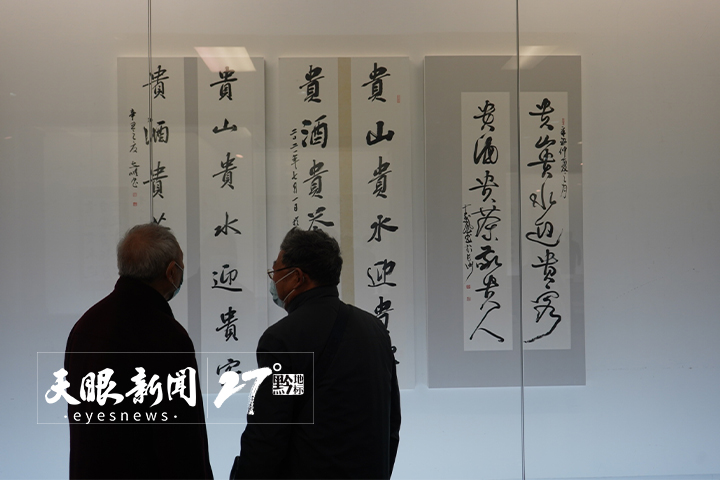 貴山貴水迎貴客
貴酒貴
辛丑之夏
貴山貴水迎貴
貴酒貴茶
二〇二一年七月一日
贵山贵水迎贵客
贵酒贵茶敬贵人
天眼新闻
·eyesnews·
27°黔地标